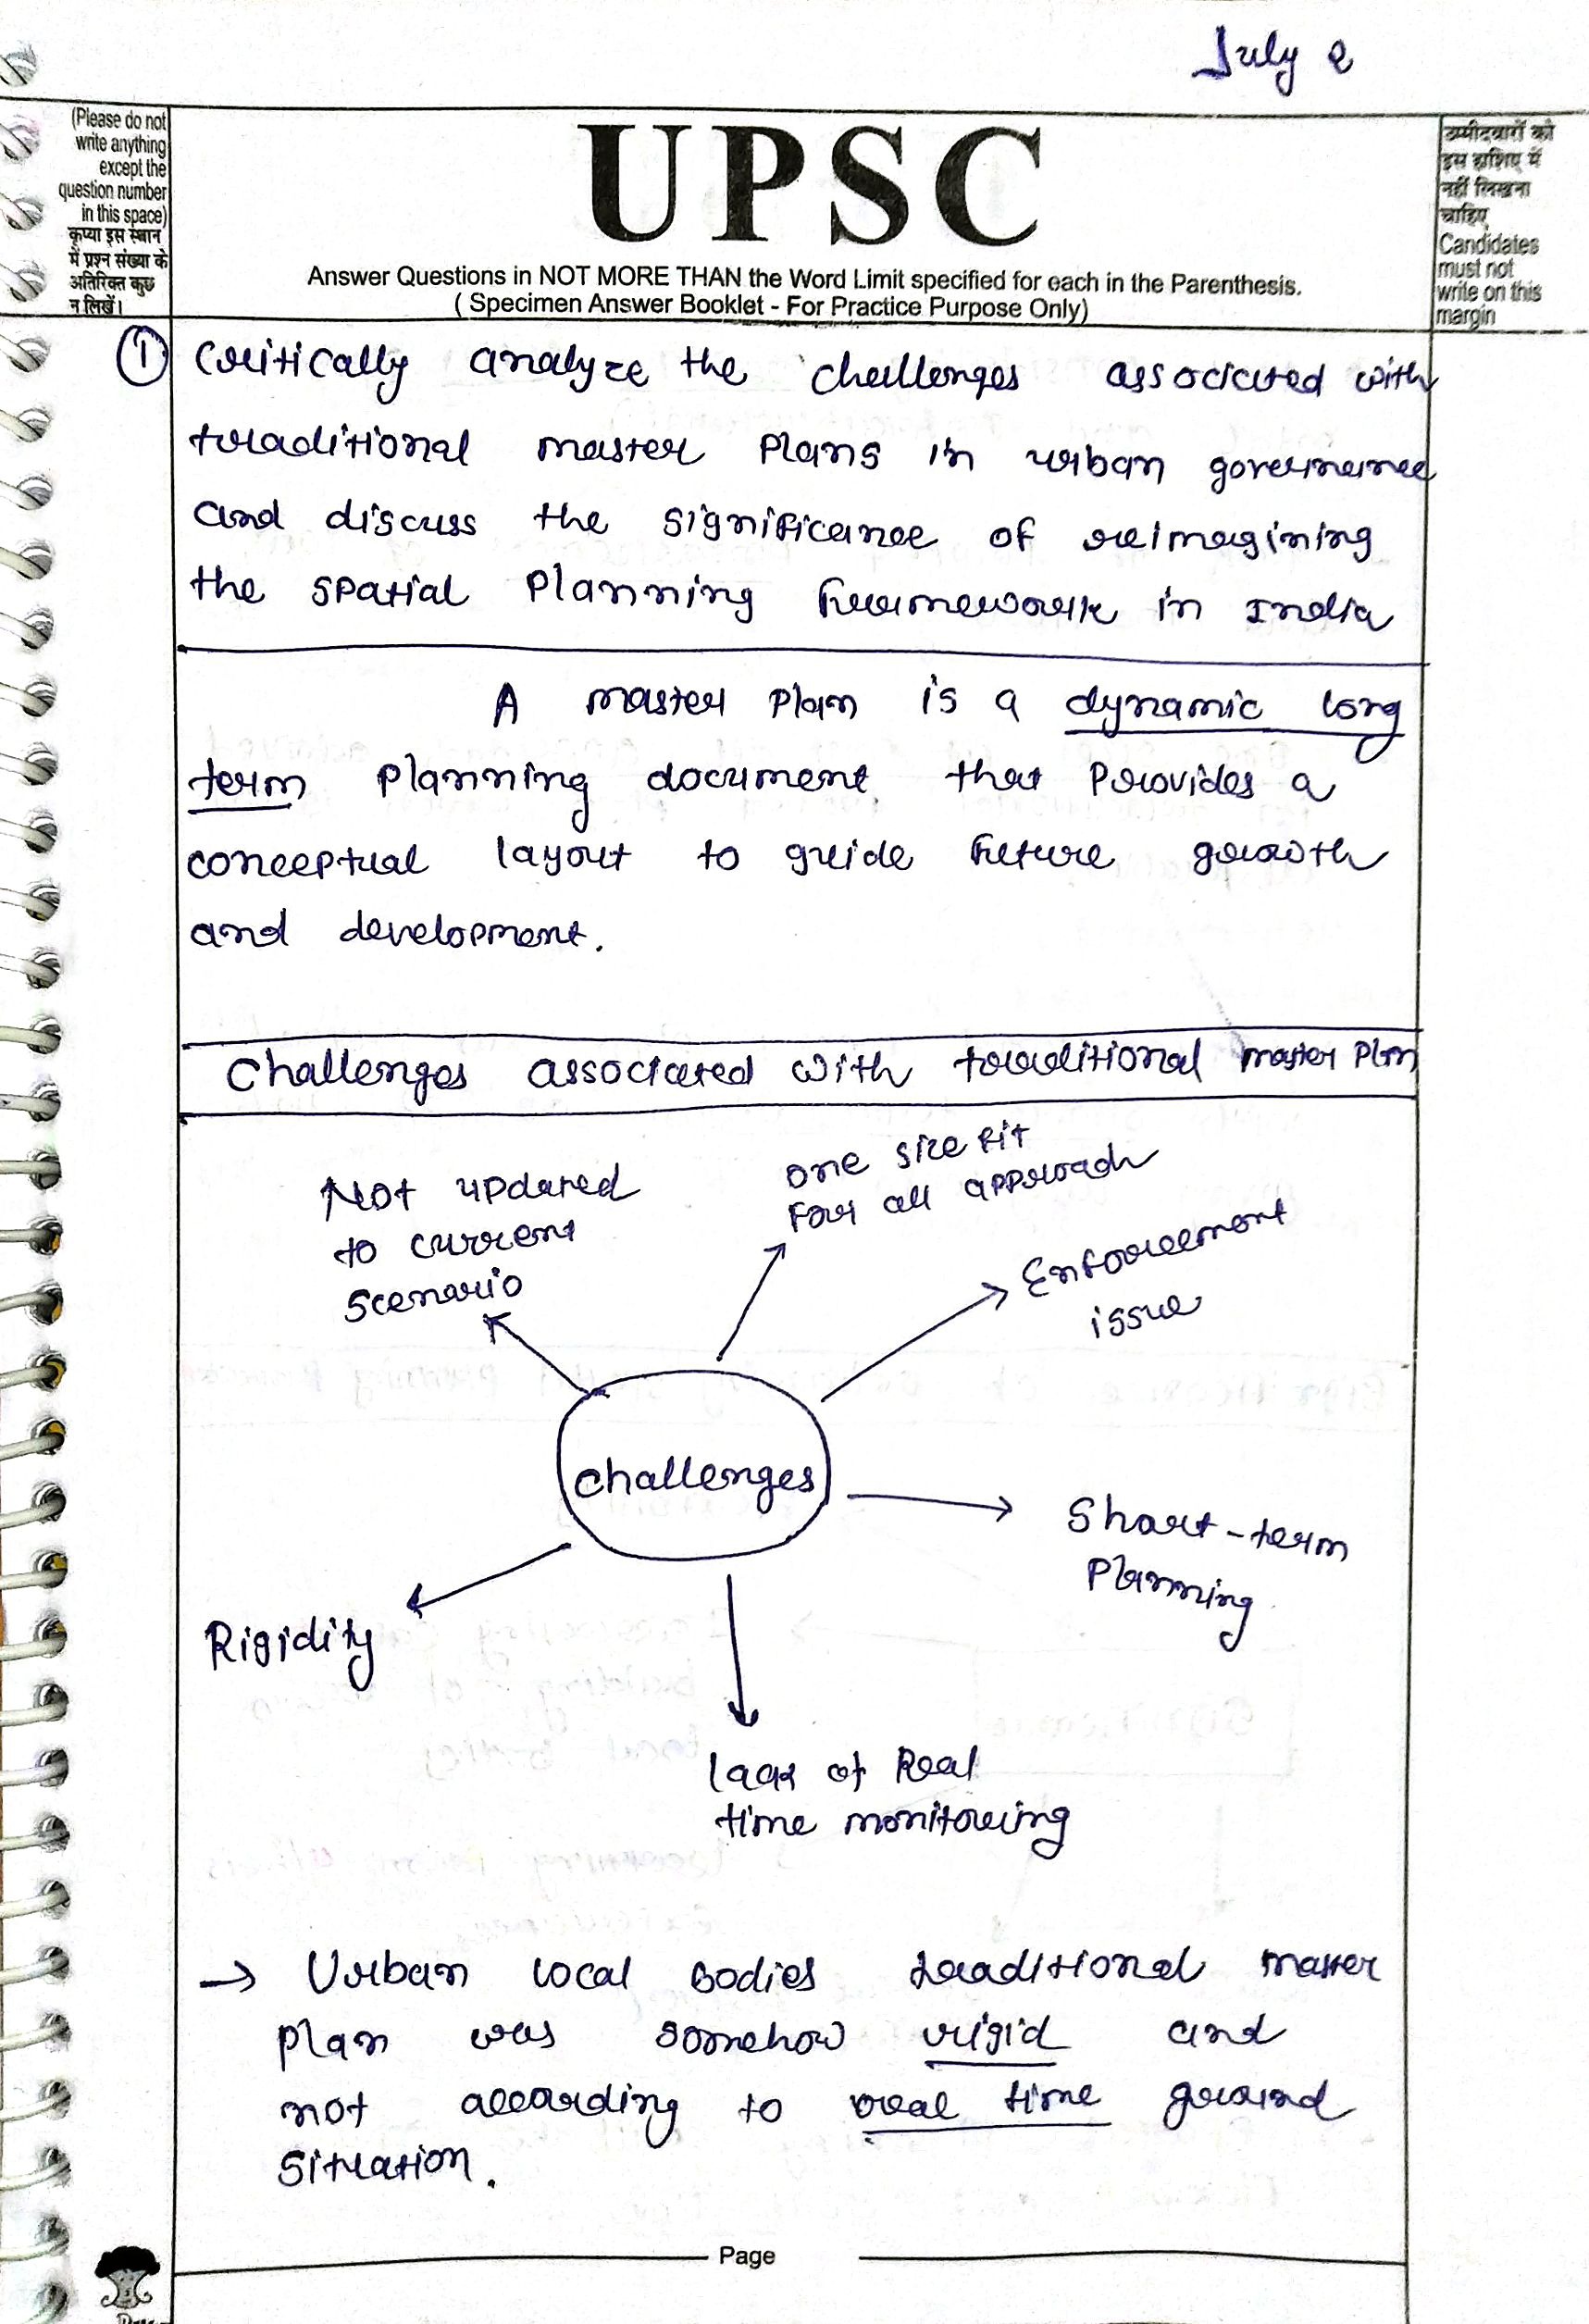 July 2
(Please do not
write anything
except the
question number
in this space)
कृप्या इस स्थान
में प्रश्न संख्या के
अतिरिक्त कुछ
न लिखें।
UPSC
Answer Questions in NOT MORE THAN the Word Limit specified for each in the Parenthesis.
( Specimen Answer Booklet - For Practice Purpose Only)
उम्मीदवारों को
इस हाशिए में
नहीं लिखना
चाहिए
Candidates
must not
write on this
margin
① Critically analyze the challenges associated with
traditional master plans in urban governance
and discuss the significance of reimagining
the spatial planning framework in India
A master plan is a dynamic long
term planning document that provides a
conceptual layout to guide future growth
and development.
Challenges associated with traditional master plan
Not updated
to current
scenario
one size fit
for all approach
Enforcement
issue
Challenges
Short-term
planning
Rigidity
lack of Real
time monitoring
→ Urban local bodies traditional master
plan was somehow rigid and
not according to real time ground
situation.
Page